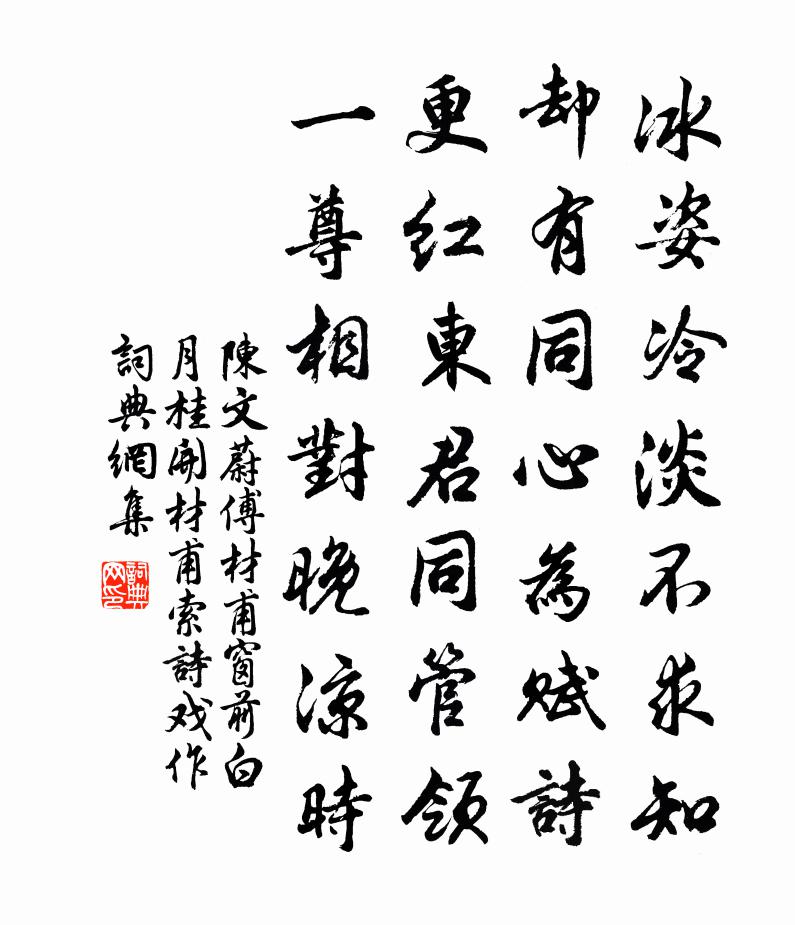 冰姿冷淡不求知
却有同心為賦詩
更紅東君同管領
一尊相對晚涼時
陳文蔚傅材甫窗前白
月桂開材甫索詩戏作
詞典網集
詞典网印